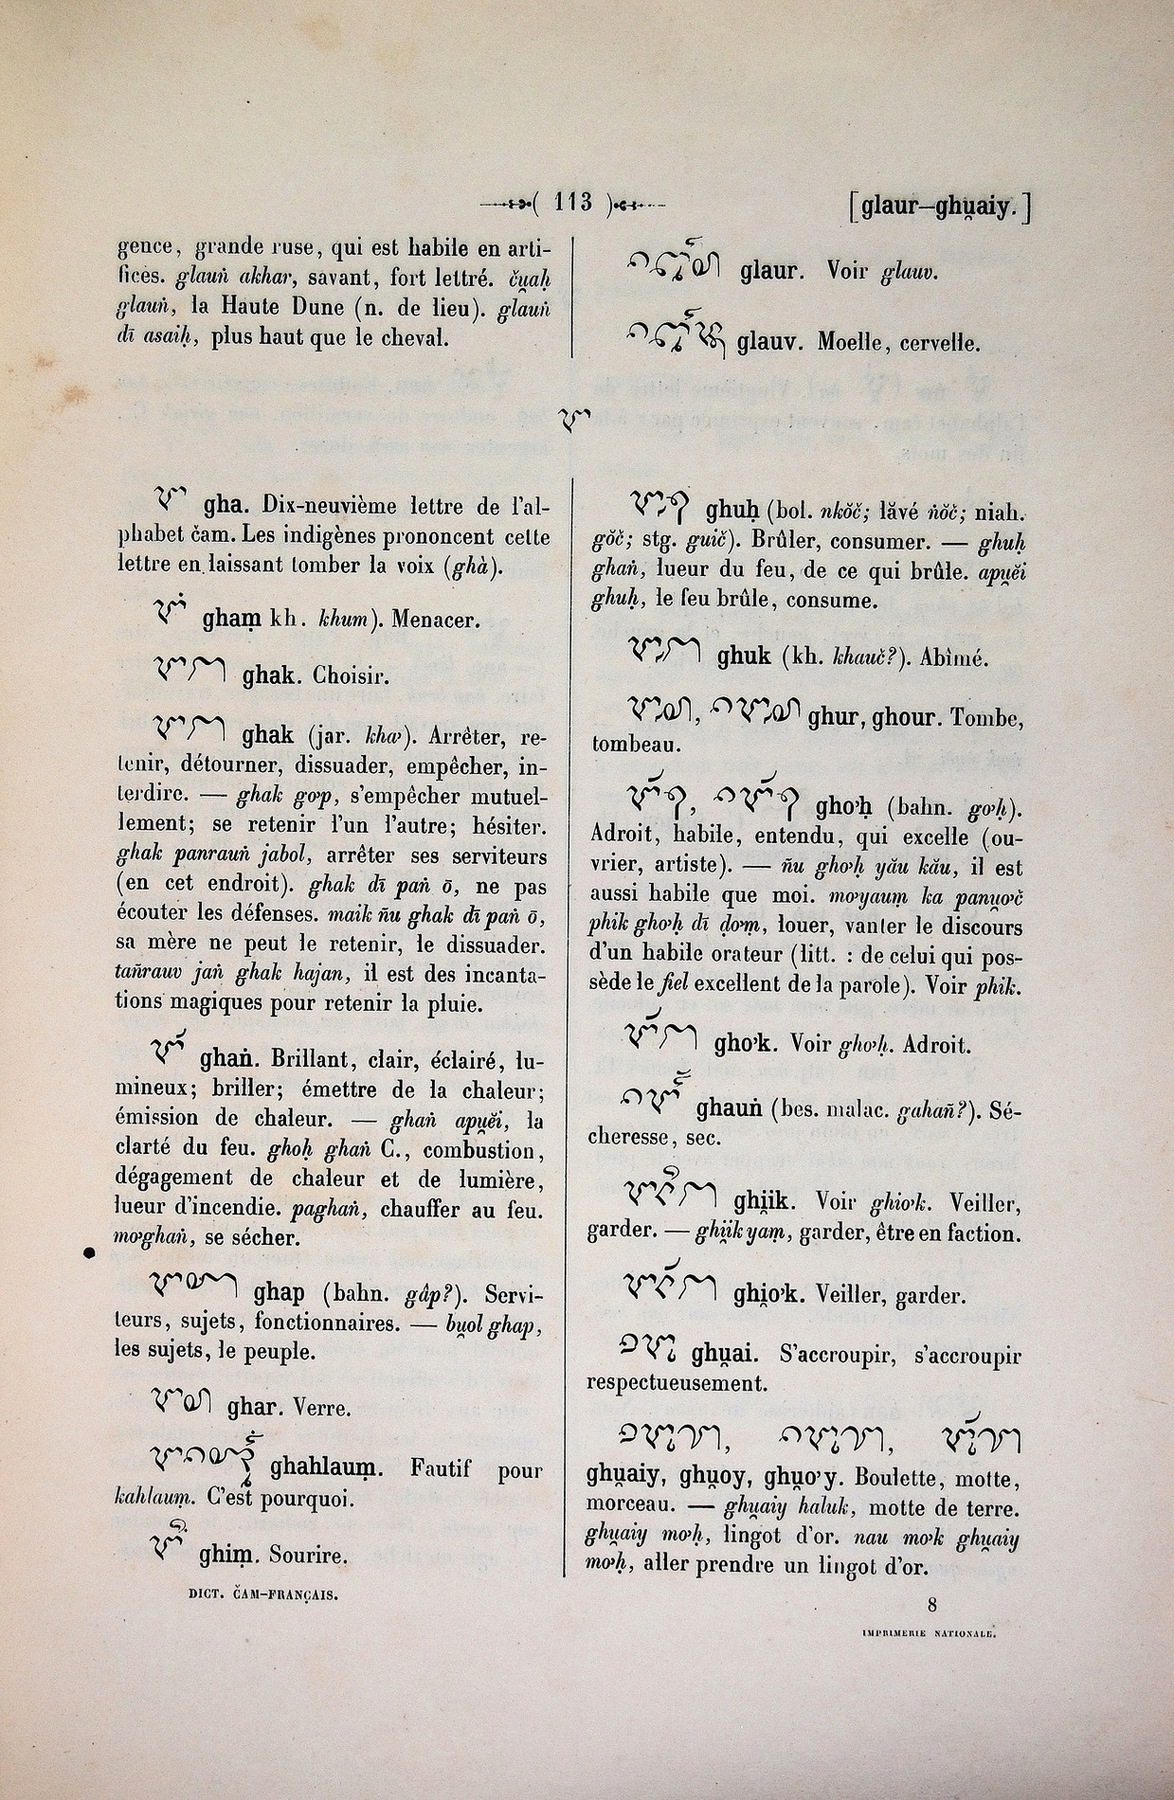 ( 113 )
[glaur–ghṷaiy.]
gence, grande ruse, qui est habile en arti-
fices. glauṅ akhar, savant, fort lettré. čṷaḥ
glauṅ, la Haute Dune (n. de lieu). glauṅ
dī asaiḥ, plus haut que le cheval.
glaur. Voir glauv.
glauv. Moelle, cervelle.
gha. Dix-neuvième lettre de l'al-
phabet čam. Les indigènes prononcent cette
lettre en laissant tomber la voix (ghà).
ghaṃ kh. khum). Menacer.
ghak. Choisir.
ghak (jar. kha'). Arrêter, re-
tenir, détourner, dissuader, empêcher, in-
terdire. — ghak gơp, s'empêcher mutuel-
lement; se retenir l'un l'autre; hésiter.
ghak panrauṅ jabol, arrêter ses serviteurs
(en cet endroit). ghak dī paṅ ō, ne pas
écouter les défenses. maik ñu ghak dī paṅ ō,
sa mère ne peut le retenir, le dissuader.
tañrauv jaṅ ghak hajan, il est des incanta-
tions magiques pour retenir la pluie.
ghaṅ. Brillant, clair, éclairé, lu-
mineux; briller; émettre de la chaleur;
émission de chaleur. — ghaṅ apṷĕi, la
clarté du feu. ghoḥ ghaṅ C., combustion,
dégagement de chaleur et de lumière,
lueur d'incendie. paghaṅ, chauffer au feu.
mơghaṅ, se sécher.
ghap (bahn. gâp?). Servi-
teurs, sujets, fonctionnaires. — bṷol ghap,
les sujets, le peuple.
ghar. Verre.
ghahlauṃ. Fautif pour
kahlauṃ. C'est pourquoi.
ghiṃ. Sourire.
DICT. ČAM-FRANÇAIS.
ghuḥ (bol. nkŏč; lăvé ṅŏč; niah.
gŏč; stg. guič). Brûler, consumer. — ghuḥ
ghaṅ, lueur du feu, de ce qui brûle. apṷĕi
ghuḥ, le feu brûle, consume.
ghuk (kh. khauč?). Abîmé.
ghur, ghour. Tombe,
tombeau.
ghơḥ (bahn. gơḥ).
Adroit, habile, entendu, qui excelle (ou-
vrier, artiste). — ñu ghơḥ yău kău, il est
aussi habile que moi. mơyauṃ ka panṷơč
phik ghơḥ dī ḍơṃ, louer, vanter le discours
d'un habile orateur (litt. : de celui qui pos-
sède le fiel excellent de la parole). Voir phik.
ghơk. Voir ghơḥ. Adroit.
ghauṅ (bes. malac. gahañ?). Sé-
cheresse, sec.
ghḭik. Voir ghiơk. Veiller,
garder. — ghḭik yaṃ, garder, être en faction.
ghḭơk. Veiller, garder.
ghṷai. S'accroupir, s'accroupir
respectueusement.
ghṷaiy, ghṷoy, ghṷơy. Boulette, motte,
morceau. — ghṷaiy haluk, motte de terre.
ghṷaiy mơḥ, lingot d'or. nau mơk ghṷaiy
mơḥ, aller prendre un lingot d'or.
8
IMPRIMERIE NATIONALE.